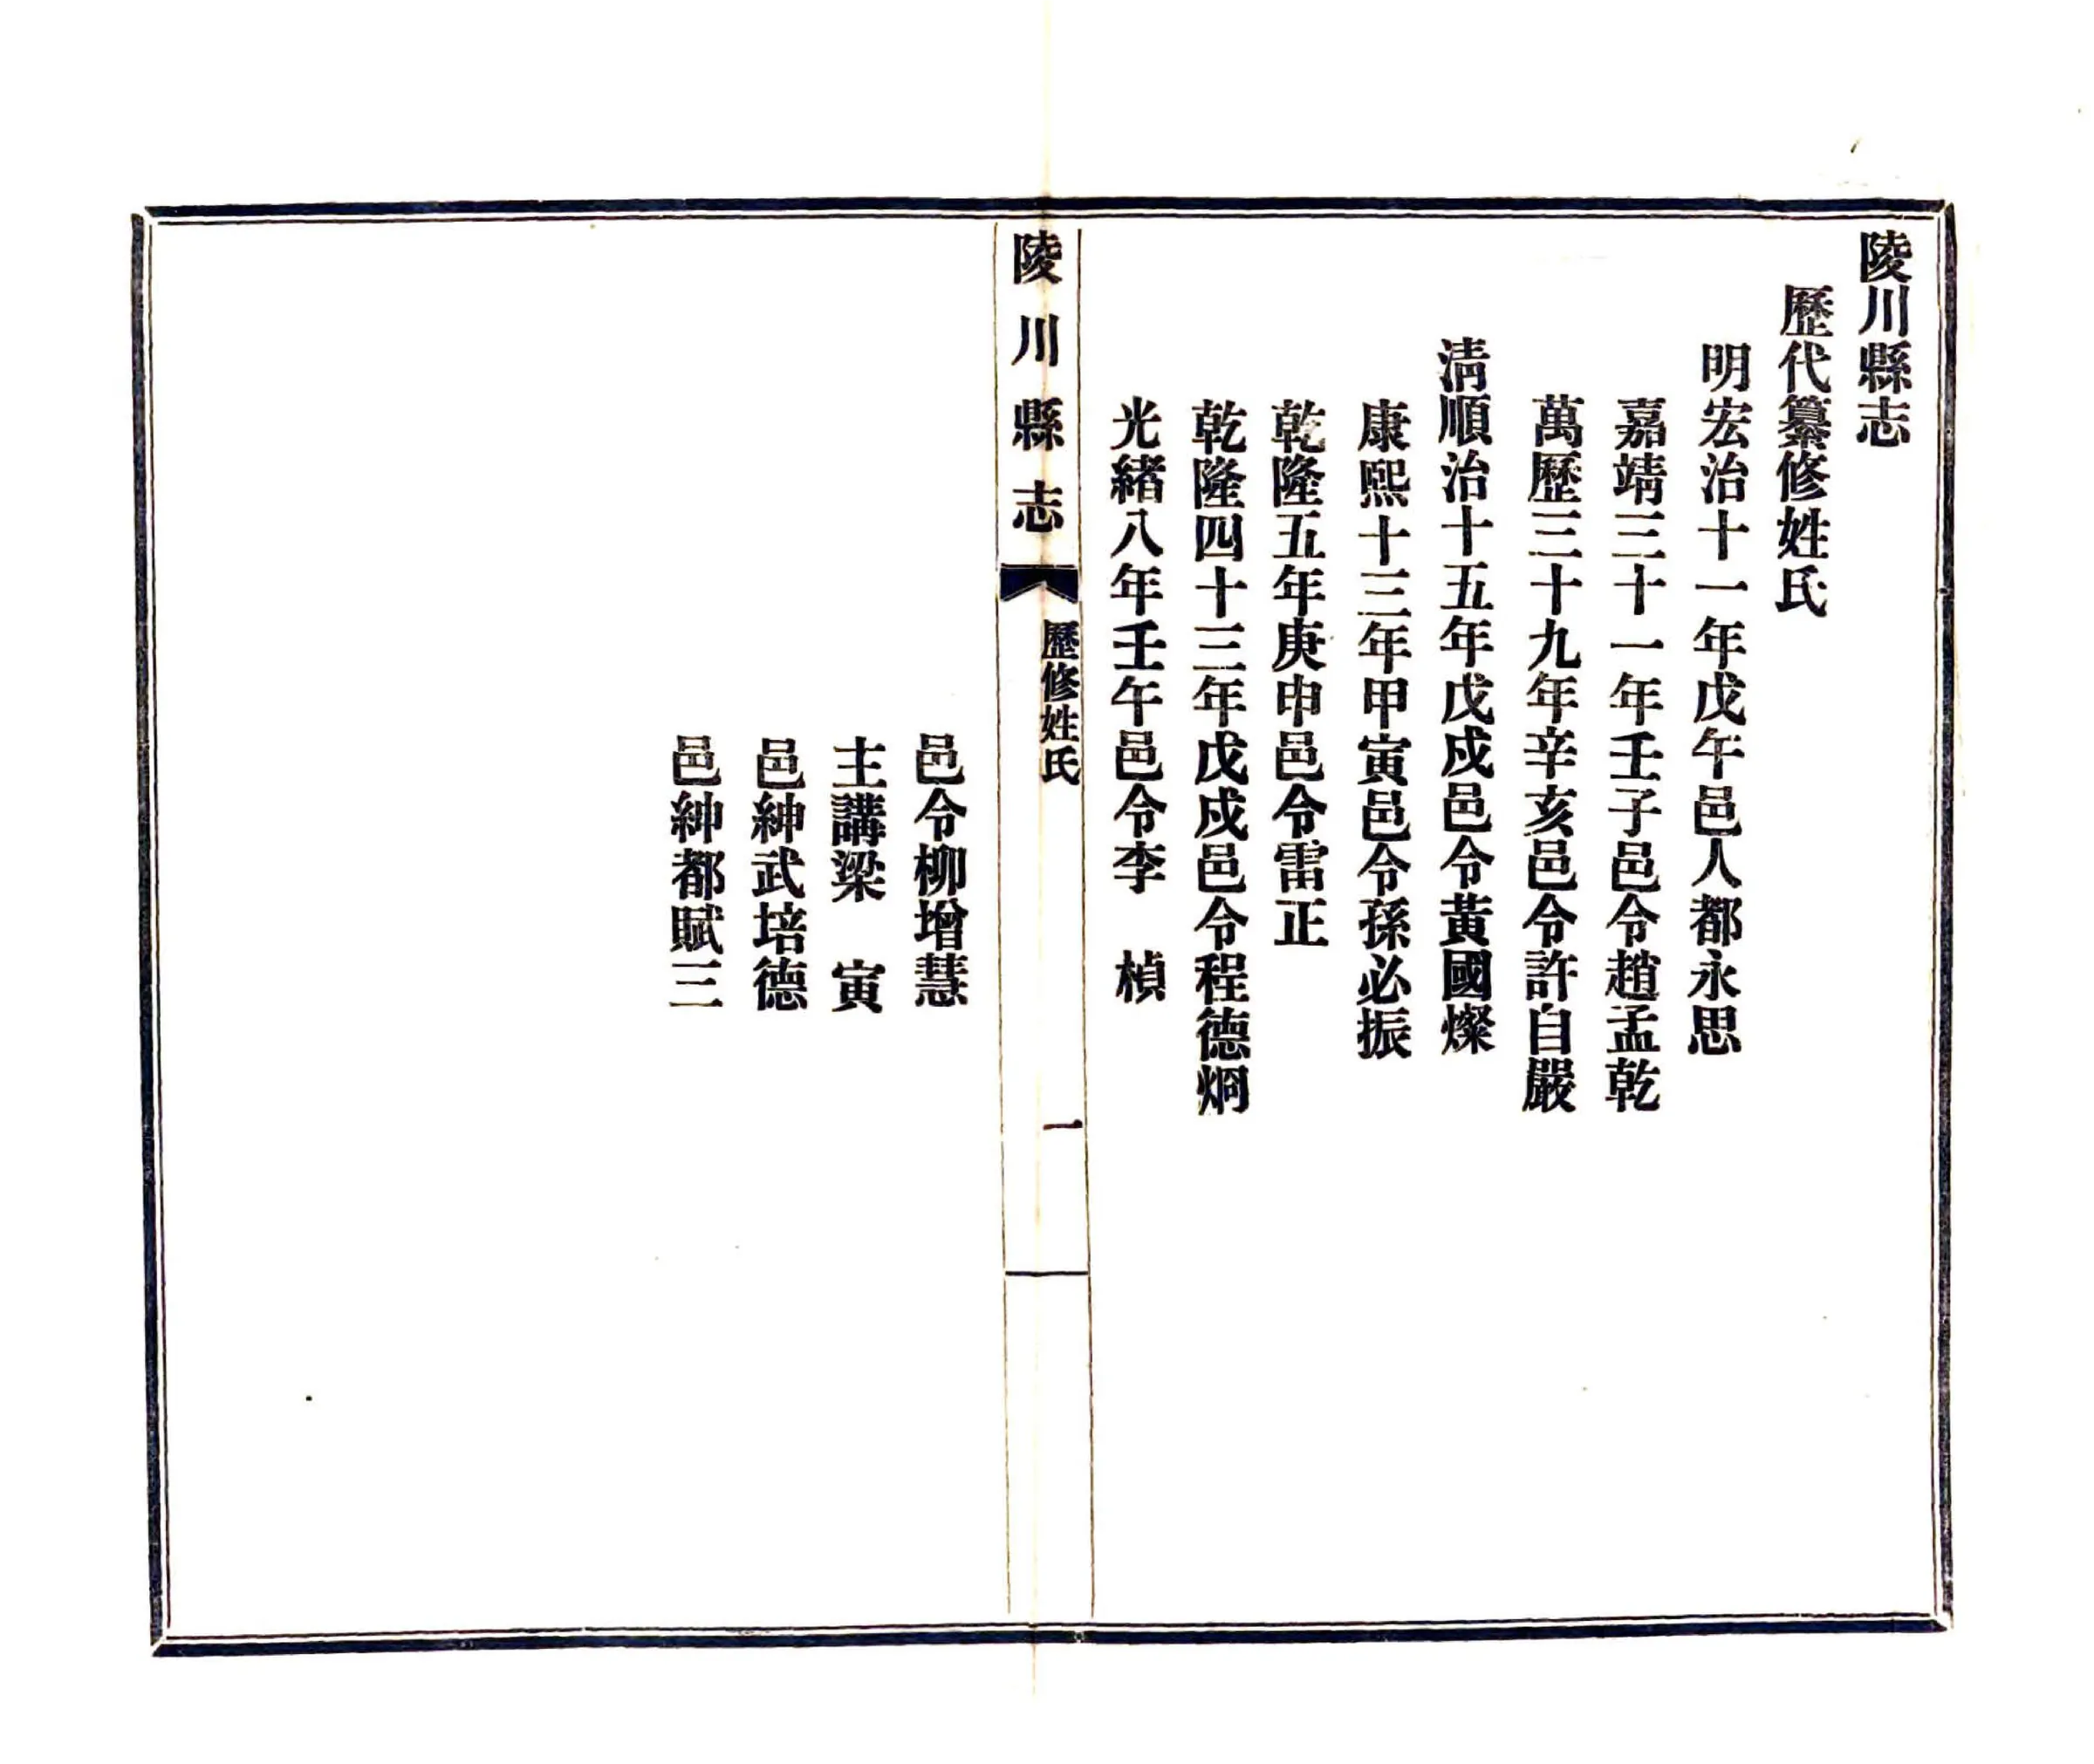 陵川縣志
歷代纂修姓氏
明宏治十一年戊午邑人都永思
嘉靖三十一年壬子邑令趙孟乾
萬歷三十九年辛亥邑令許自嚴
淸順治十五年戊戌邑令黃國燦
康熙十三年甲寅邑令孫必振
乾隆五年庚申邑令雷正
乾隆四十三年戊戌邑令程德烱
光緖八年壬午邑令李　楨
陵川縣志
歷修姓氏
一
邑令柳增慧
主講梁　寅
邑紳武培德
邑紳都賦三